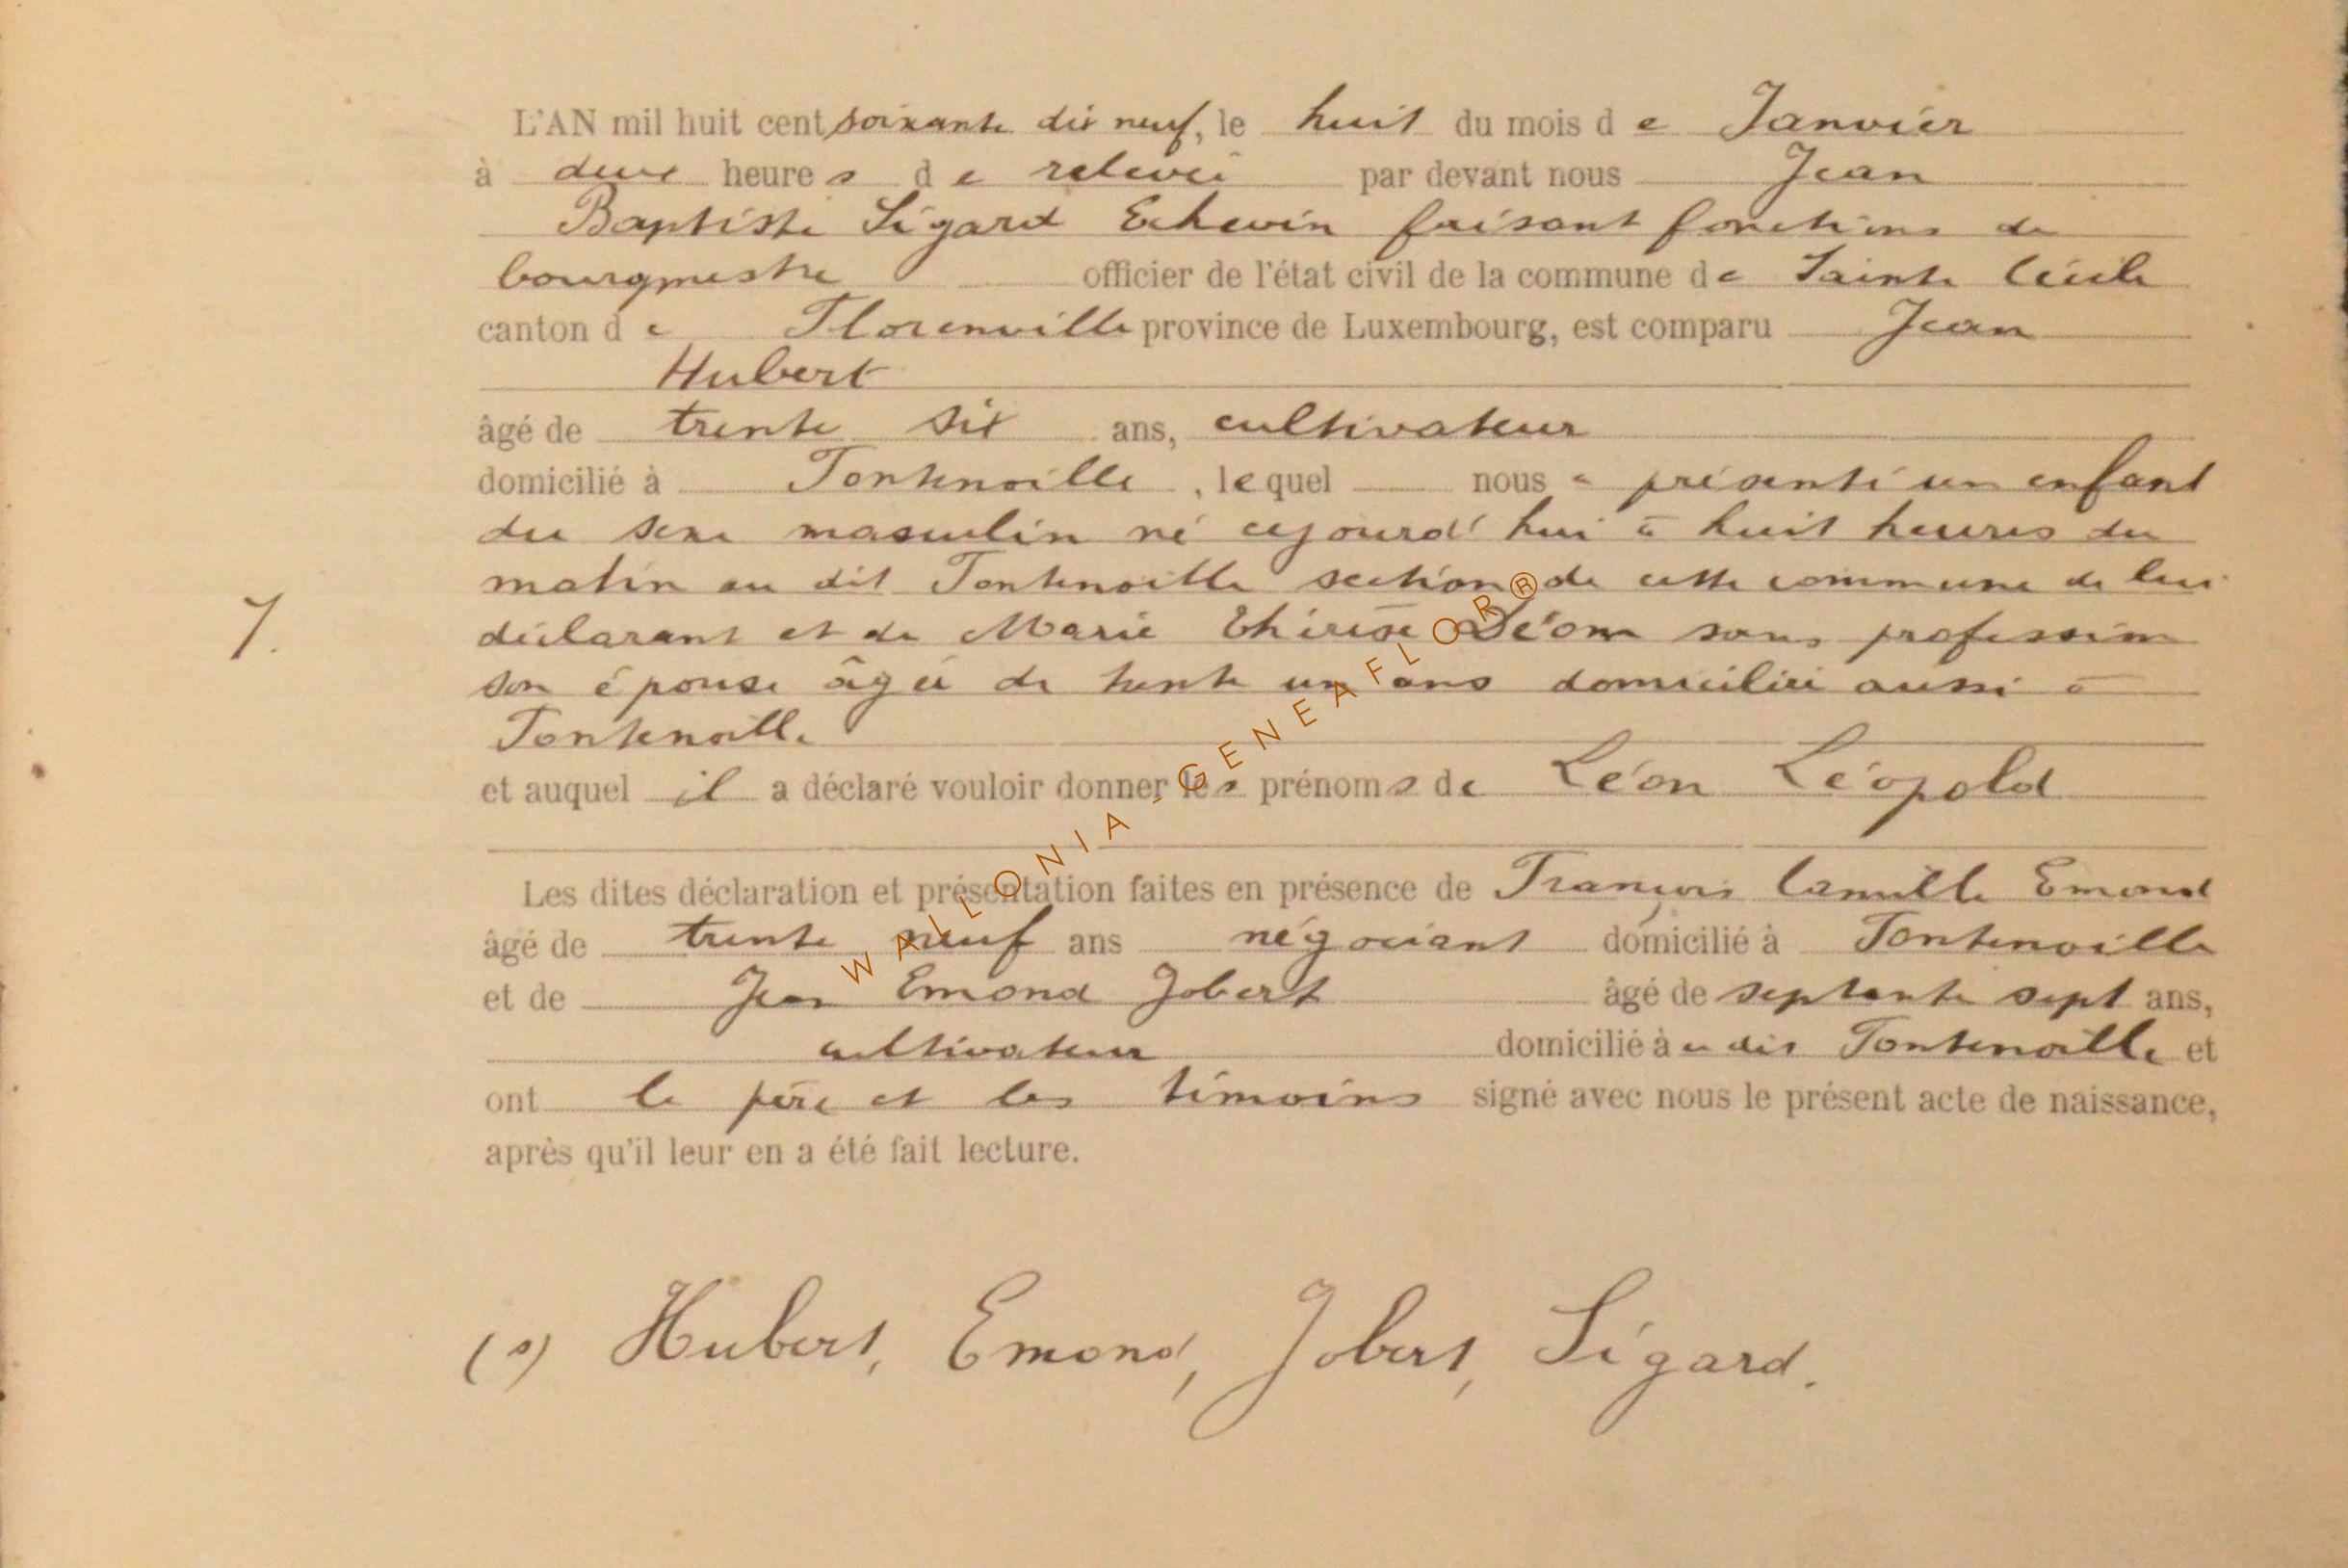 L'AN mil huit cent soixante dix neuf, le huit du mois de Janvier
à deux heures de relevée par devant nous Jean
Baptiste Sigard Echevin faisant fonctions de
bourgmestre officier de l'état civil de la commune de Sainte Cécile
canton de Florenville province de Luxembourg, est comparu Jean
Hubert
âgé de trente six ans, cultivateur
domicilié à Fontenoille, lequel nous a présenté un enfant
du sexe masculin né cejourd'hui à huit heures du
matin au dit Fontenoille section de cette commune de lui
7.
déclarant et de Marie Thérèse Déom sans profession
son épouse âgée de trente un ans domiciliée aussi à
Fontenoille
et auquel il a déclaré vouloir donner les prénoms de Léon Léopold
Les dites déclaration et présentation faites en présence de François Camille Emond
âgé de trente neuf ans négociant domicilié à Fontenoille
et de Jean Emond Jobert âgé de septante sept ans,
cultivateur domicilié au dit Fontenoille et
ont le père et les témoins signé avec nous le présent acte de naissance,
après qu'il leur en a été fait lecture.
(s) Hubert, Emond, Jobert, Sigard.
WALLONIA-GENEAFLOR®